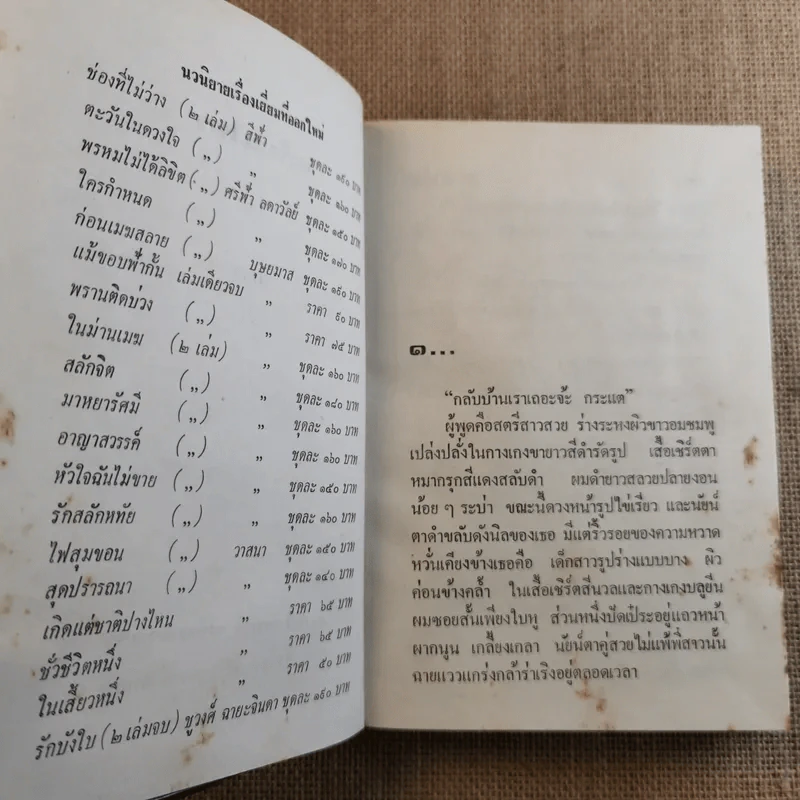 นวนิยายเรื่องเยี่ยมที่ออกใหม่
ช่องที่ไม่ว่าง (๒ เล่ม) สีฟ้า ชุดละ ๑๙๐ บาท
ตะวันในดวงใจ (,,) ,, ชุดละ ๑๖๐ บาท
พรหมไม่ได้ลิขิต (,,) ศรีฟ้า ลดาวัลย์ ชุดละ ๑๕๐ บาท
ใครกำหนด (,,) ,, ชุดละ ๑๗๐ บาท
ก่อนเมฆสลาย (,,) บุษยมาส ชุดละ ๑๙๐ บาท
แม้ขอบฟ้ากั้น เล่มเดียวจบ ,, ราคา ๙๐ บาท
พรานติดบ่วง (,,) ,, ราคา ๗๕ บาท
ในม่านเมฆ (๒ เล่ม) ,, ชุดละ ๑๖๐ บาท
สลักจิต (,,) ,, ชุดละ ๑๘๐ บาท
มาหยารัศมี (,,) ,, ชุดละ ๑๖๐ บาท
อาญาสวรรค์ (,,) ,, ชุดละ ๑๖๐ บาท
หัวใจฉันไม่ขาย (,,) ,, ชุดละ ๑๕๐ บาท
รักสลักหทัย (,,) ,, ชุดละ ๑๖๐ บาท
ไฟสุมขอน (,,) วาสนา ชุดละ ๑๕๐ บาท
สุดปรารถนา (,,) ,, ชุดละ ๑๔๐ บาท
เกิดแต่ชาติปางไหน ,, ราคา ๖๕ บาท
ชั่วชีวิตหนึ่ง ,, ราคา ๖๕ บาท
ในเสี้ยวหนึ่ง ,, ราคา ๕๐ บาท
รักบังใบ (๒ เล่มจบ) ชูวงศ์ ฉายะจินดา ชุดละ ๑๙๐ บาท
๑...
“กลับบ้านเราเถอะจ้ะ กระแต”
ผู้พูดคือสตรีสาวสวย ร่างระหงผิวขาวอมชมพู
เปล่งปลั่งในกางเกงขายาวสีดำรัดรูป เสื้อเชิร์ตตา
หมากรุกสีแดงสลับดำ ผมดำยาวสลวยปลายงอน
น้อย ๆ ระบ่า ขณะนี้ดวงหน้ารูปไข่เรียว และนัยน์
ตาดำขลับดังนิลของเธอ มีแต่ริ้วรอยของความหวาด
หวั่นเคียงข้างเธอคือ เด็กสาวรูปร่างแบบบาง ผิว
ค่อนข้างคล้ำ ในเสื้อเชิร์ตสีนวลและกางเกงบลูยีน
ผมซอยสั้นเพียงใบหู ส่วนหนึ่งปัดเป๋อยู่แถวหน้า
ผากนูน เกลี้ยงเกลา นัยน์ตาคู่สวยไม่แพ้พี่สาวนั้น
ฉายแววแกร่งกล้าร่าเริงอยู่ตลอดเวลา